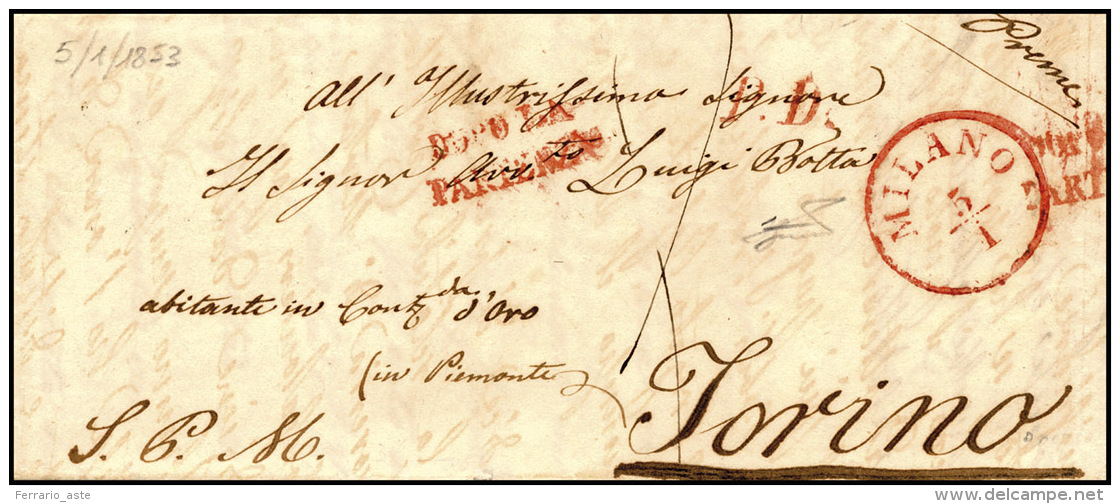 5/1/1853
Preme
All' Illustrissimo Signore
P. D.
DOPO LA
PARTENZA
Il Signor Avv.to Luigi Botta
MILANO
5/1
DOPO
PART
abitante in Contr.da d'Oro
(in Piemonte
Torino
S. P. M.
Ferrario_aste
delcampe.net